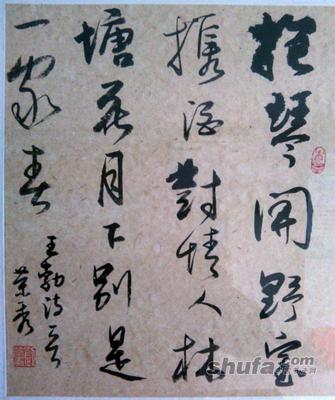 抱琴開野室
携酒對情人林
塘花月下別是
一家春
王勃诗
秀
shufa.com